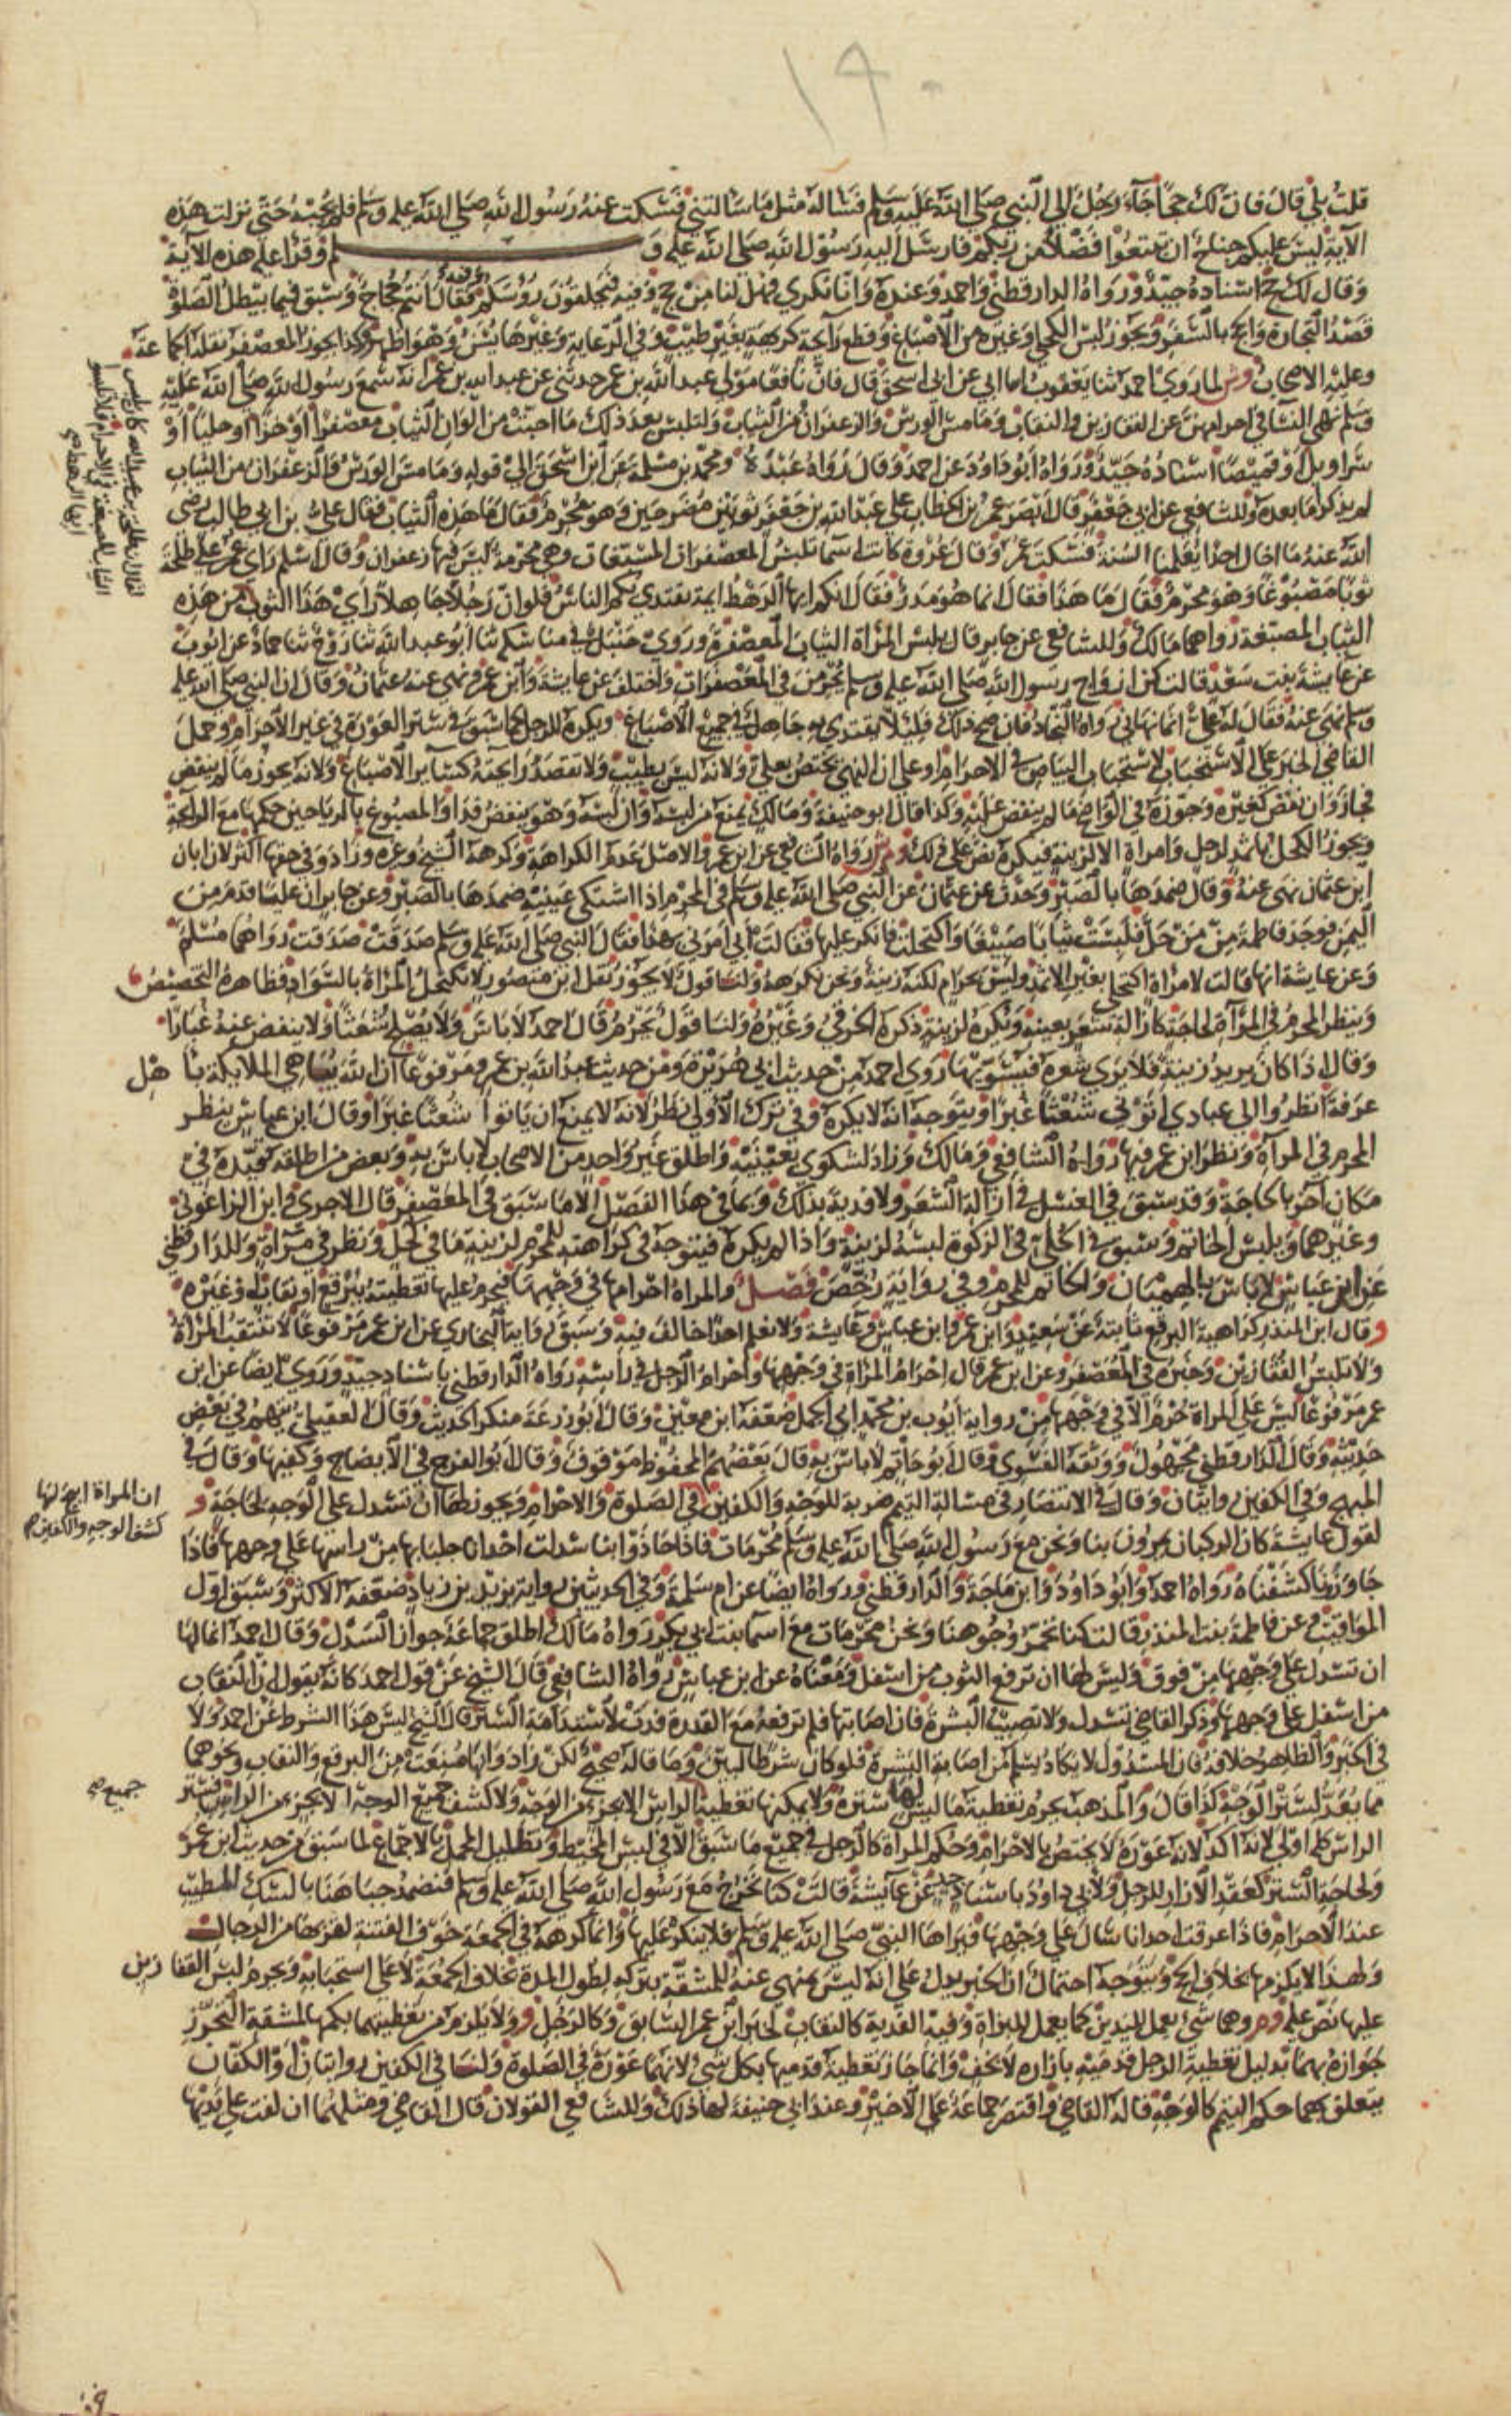 ١٩٠
قلت بلي قال فان لك حجا جاء رجل الي النبي صلي الله عليه وسلم فساله مثل ما سالتني فسكت عنه رسول الله صلي الله عليه وسلم فلم يجبه حتى نزلت هذه
الآية ليس عليكم جناح ان تبتغوا فضلا من ربكم فارسل اليه رسول الله صلي الله عليه و سلم وقرا عليه هذه الآية
وقال لك حج اسناده جيد ورواه الدارقطني واحمد وعنده وانا نكري فهل لنا من حج وفيه وتحلقون رؤسكم وفيه فقال انتم حجاج وسبق فيما يبطل الصلوة
قصد التجارة والحج بالسفر ويجوز لبس الكحلي وغيره من الاصباغ وقطع رائحة كريهة بغير طيب وفي الرعاية وغيرها يسن وهو اظهر وكذا يجوز المعصفر نقله الجماعة
وعليه الاصحاب وش لما روي احمد ثنا يعقوب ثنا ابي عن ابي اسحق قال فان نافعا مولى عبد الله بن عمر حدثني عن عبد الله بن عمر انه سمع رسول الله صلي الله عليه
وسلم نهي النسا في احرامهن عن القفازين والنقاب وما مس الورس والزعفران من الثياب ولتلبس بعد ذلك ما احبت من الوان الثياب معصفرا او خزا او حليا او
سراويل او قميصا اسناده جيد ورواه ابو داود عن احمد وقال رواه عبدة ومحمد بن سلمة عن ابن اسحق الي قوله وما مس الورس والزعفران من الثياب
لم يذكر ما بعده وللشافعي عن ابي جعفر قال ابصر عمر بن الخطاب علي عبد الله بن جعفر ثوبين مضرجين وهو محرم فقال ما هذه الثياب فقال علي بن ابي طالب رضي
الله عنه ما اخال احدا يعلمنا السنة فسكت عمر وقال عروة كانت اسما تلبس المعصفرات المشبعات وهي محرمة ليس فيها زعفران وقال اسلم راى عمر علي طلحة
ثوبا مصبوغا وهو محرم فقال ما هذا فقال انما هو مدر فقال انكم ايها الرهط ايمة يقتدي بكم الناس فلو ان رجلا جاهلا راي هذا الثوب من هذه
الثياب المصبغة رواهما مالك وللشافعي عن جابر قال تلبس المراة الثياب المعصفرة وروي حنبل في مناسكه ثنا ابو عبد الله ثنا روح ثنا حماد عن ايوب
عن عايشة بنت سعد قالت كن ازواج رسول الله صلي الله عليه وسلم يحرمن في المعصفرات واختلف عن عايشة وابن عمر ونهي عنه عثمان وقال ان النبي صلي الله عليه
وسلم نهى عنه فقال له علي انما نهاني رواه النجاد فان صح ذلك فليلا يقتدي به جاهل في جميع الاصباغ ويكره للرجل كما سبق في ستر العورة في غير الاحرام وحمل
القاضي الخبر على الاستحباب لاستحباب البياض في الاحرام او على ان النهي يختص بعلي ولانه ليس بطيب ولا تقصد رايحته كسائر الاصباغ ولانه يجوز ما لم ينفض
فجاز وان نفض كغيره وجوزه في الواضح ما لم ينفض عليه وكذا قال ابو حنيفة ومالك يمنع من لبسه وان لبسه وهو ينفض فدا والمصبوغ بالرياحين حكمها مع الرايحة
ويجوز الكحل باثمد لرجل وامراة الا لزينة فيكره نص علي ذلك وم ش رواه الشافعي عن ابن عمر والاصل عدم الكراهة وكرهه الشيخ وغيره وزاد وفي حقها اكثر لان ابان
ابن عثمان نهى عنه وقال ضمدها بالصبر وحدث عن عثمان عن النبي صلي الله عليه وسلم في المحرم اذا اشتكى عينيه ضمدها بالصبر وعن جابر ان عليا قدم من
اليمن فوجد فاطمة ممن حل فلبست ثيابا صبيغا واكتحلت فانكر عليها فقالت ابي امرني بهذا فقال النبي صلي الله عليه وسلم صدقت صدقت رواهما مسلم
وعن عايشة انها قالت لامراة اكتحلي بغير الاثمد وليس بحرام لكنه زينة ونحن نكرهه ولنا قول لا يجوز نقل ابن منصور لا تكتحل المراة بالسواد فظاهره التخصيص
وينظر المحرم في المرآة لحاجة كازالة شعر بعينه ويكره لزينة ذكره الخرقي وغيره ولنا قول يحرم قال احمد لا باس ولا يصلح شعثا ولا ينفض عنه غبارا
وقال اذا كان يريد زينة فلا يرى شعره فيسويها روى احمد من حديث ابي هريرة ومن حديث عبد الله بن عمرو مرفوعا ان الله يباهي الملايكة باهل
عرفة انظروا الي عبادي اتوني شعثا غبرا ويتوجه انه لا يكره وفي ترك الاولي نظر لانه لا يمنع ان ياتوا شعثا غبرا وقال ابن عباس ينظر
المحرم في المرآة ونظر ابن عمر فيها رواه الشافعي ومالك وزاد لشكوى بعينيه واطلق غير واحد من الاصحاب لا باس به وبعض من اطلقه قيده في
مكان آخر بالحاجة وقد سبق في الغسل في ازالة الشعر ولا فدية بذلك وبما في هذا الفصل الا ما سبق في المعصفر قال الاجري وابن الزاغوني
وغيرهما ويلبس الخاتم وسبق في الحلي في الزكوة لبسه لزينة واذا لم يكره فيتوجه في كراهته للمحرم لزينة ما في كحل ونظر في مرآة وللدارقطني
عن ابن عباس لا باس بالهميان والخاتم للمحرم وفي رواية رخص فصل والمراة احرامها في وجهها فيحرم عليها تغطيته ببرقع او نقاب وغيره
وقال ابن المنذر كراهية البرقع ثابتة عن سعيد وابن عمر وابن عباس وعايشة ولا نعلم احدا خالف فيه وسبق رواية البخاري عن ابن عمر مرفوعا لا تنتقب المراة
ولا تلبس القفازين وخبره في المعصفر وعن ابن عمر قال احرام المراة في وجهها واحرام الرجل في راسه رواه الدارقطني باسناد جيد وروي ايضا عن ابن
عمر مرفوعا ليس على المراة حرم الا في وجهها من رواية ايوب بن محمد ابي الجمل ضعفه ابن معين وقال ابو زرعة منكر الحديث وقال العقيلي يهم في بعض
حديثه وقال الدارقطني مجهول ووثقه الفسوي وقال ابو حاتم لا باس به قال بعضهم المحفوظ موقوف وقال ابو الفرج في الايضاح وكفيها وقال في
المبهج وفي الكفين روايتان وقال في الانتصار في مسالة التيمم ضربة للوجه والكفين في الصلوة والاحرام ويجوز لها ان تسدل على الوجه لحاجة و
لقول عايشة كان الركبان يمرون بنا ونحن مع رسول الله صلي الله عليه وسلم محرمات فاذا حاذوا بنا سدلت احدانا جلبابها من راسها على وجهها فاذا
جاوزونا كشفناه رواه احمد وابو داود وابن ماجة والدارقطني ورواه ايضا عن ام سلمة وفي الحديثين رواية يزيد بن زياد ضعفه الاكثر وسبق اول
المواقيت وعن فاطمة بنت المنذر قالت كنا نخمر وجوهنا ونحن محرمات مع اسما بنت ابي بكر رواه مالك اطلق جماعة جواز السدل وقال احمد انما لها
ان تسدل على وجهها من فوق وليس لها ان ترفع الثوب من اسفل ومعناه عن ابن عباس رواه الشافعي قال الشيخ عن قول احمد كانه يقول ان النقاب
من اسفل على وجهها وذكر القاضي تسدل ولا تصيب البشرة فان اصابتها فلم ترفعه مع القدرة فدت لاستدامة الستر قال الشيخ ليس هذا الشرط عن احمد ولا
في الخبر والظاهر خلافه فان المسدول لا يكاد يسلم من اصابة البشرة فلو كان شرطا لبين وما قاله صحيح لكن زاد وانما منعت من البرقع والنقاب ونحوهما
مما يعد لستر الوجه كذا قال والمذهب يحرم تغطية ما ليس لها ستره ولا يمكنها تغطية الراس الا بجزء من الوجه ولا كشف جميع الوجه الا بجزء من الراس فستر
الراس كله اولى لانه اكد لانه عورة لا يختص بالاحرام وحكم المراة كالرجل في جميع ما سبق الا في لبس المخيط وتظليل المحمل بالاجماع لما سبق من حديث ابن عمر
ولحاجة الستر كعقد الازار للرجل ولابي داود باسناد جيد عن عايشة قالت كنا نخرج مع رسول الله صلي الله عليه وسلم فنضمد جباهنا بالسك المطيب
عند الاحرام فاذا عرقت احدانا سال على وجهها فيراها النبي صلي الله عليه وسلم فلا ينكر عليها وانما كره في الجمعة خوف الفتنة لقربها من الرجال
ولهذا لا يلزمها بخلاف الحج ويتوجه احتمال ان الخبر يدل على انه ليس بمنهي عنه للمشقة بتركه لطول المدة بخلاف الجمعة لا على استحبابه ويحرم لبس القفازين
عليها نص عليه وم وهما شيء يعمل لليدين كما يعمل للبزاة وفيه الفدية كالنقاب لخبر ابن عمر السابق وكالرجل و ولا يلزم من تغطيتهما بكمها لمشقة التحرز
جوازه بهما بدليل تغطية الرجل قدميه بازاره لا بخف وانما جاز تغطية قدميها بكل شيء لانهما عورة في الصلوة ولنا في الكفين روايتان او الكفان
يتعلق بهما حكم التيمم كالوجه قاله القاضي واقتصر جماعة على الاخير وعند ابي حنيفة لها ذلك وللشافعي القولان قال القاضي ومثلهما ان لفت على يديها
لقال ان طلحة بن عبيد الله كان يلبس
الثياب المصبغة في الاحرام فلا تلبسوا
ايها الرهط صح
ان المراة ابيح لها
كشف الوجه والكفين
جميع صح